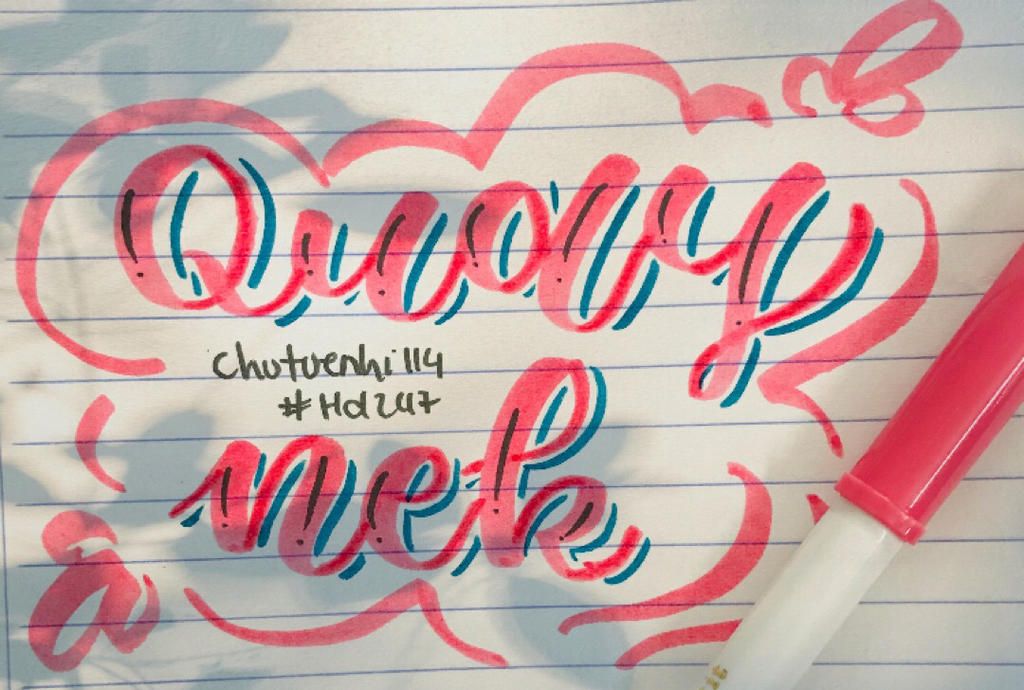 Quay
Chutuenhi 114
#Hd247
nek